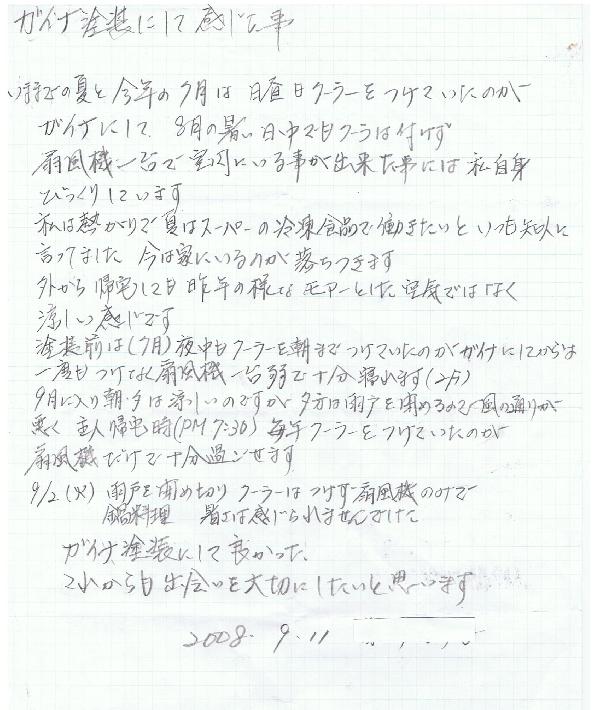 ガイナ塗装にして感じた事
いままでの夏と今年の7月は 日昼日クーラーをつけていたのが
ガイナにして、8月の暑い日中でもクーラは付けず
扇風機一台で室内にいる事が出来た事には 私自身
びっくりしています
私は熱がりで夏はスーパーの冷凍食品で働きたいといつも知人に
言ってました 今は家にいるのが落ちつきます
外から帰宅しても昨年の様なモアーとした空気ではなく
涼しい感じです
塗装前は(7月)夜中もクーラーを朝までつけていたのがガイナにしてからは
一度もつけなく扇風機一台弱で十分寝れます(2F)
9月に入り朝・夕は涼しいのですが夕方は雨戸を閉めるので風の通りが
悪く 主人帰宅時(PM 7:30) 毎年クーラーをつけていたのが
扇風機だけで十分過ごせます
9/2 (火) 雨戸を閉め切りクーラーはつけず扇風機のみで
鍋料理 暑さは感じられませんでした
ガイナ塗装にして良かった、
これからも出会いを大切にしたいと思います
2008. 9. 11